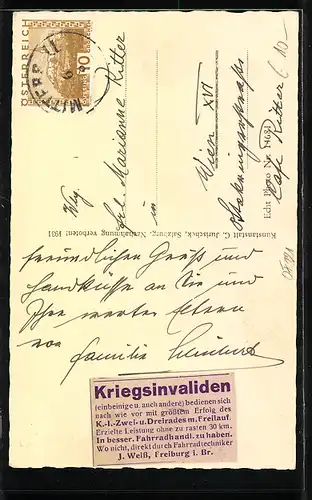 ÖSTERREICH
MITTERS
Wg.
Frl. Marianne Ritter
in
Wien XVI
Café Ritter
Echt Photo Nr. 14681
Kunstanstalt C. Jurischek, Salzburg, Nachahmung verboten! 1931
freundlichen Gruß und
Handküsse an Sie und
Ihre werten Eltern
von
Familie
Kriegsinvaliden
(einbeinige u. auch andere) bedienen sich
nach wie vor mit größtem Erfolg des
K.-I.-Zwei- u. Dreirades m. Freilauf.
Erzielte Leistung ohne zu rasten 30 km.
In besser. Fahrradhandl. zu haben.
Wo nicht, direkt durch Fahrradtechniker
J. Weiß, Freiburg i. Br.